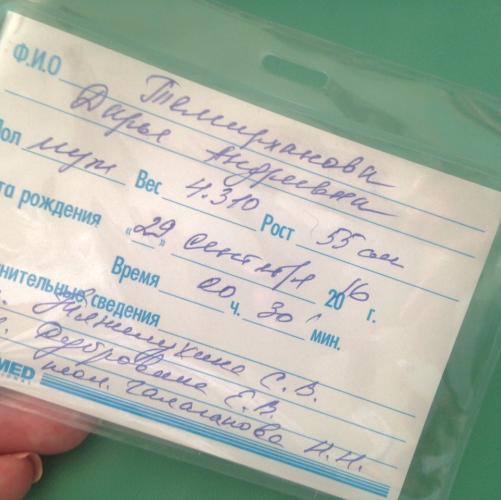 Ф.И.О Темирханова
Дарья Андреевна
Пол муж Вес 4.310 Рост 55 см
та рождения «29» сентября 2016 г.
Время 00 ч. 30 мин.
нительные сведения
С.В.
Дубровина Е.В.
Галаганова Н.Н.
MED